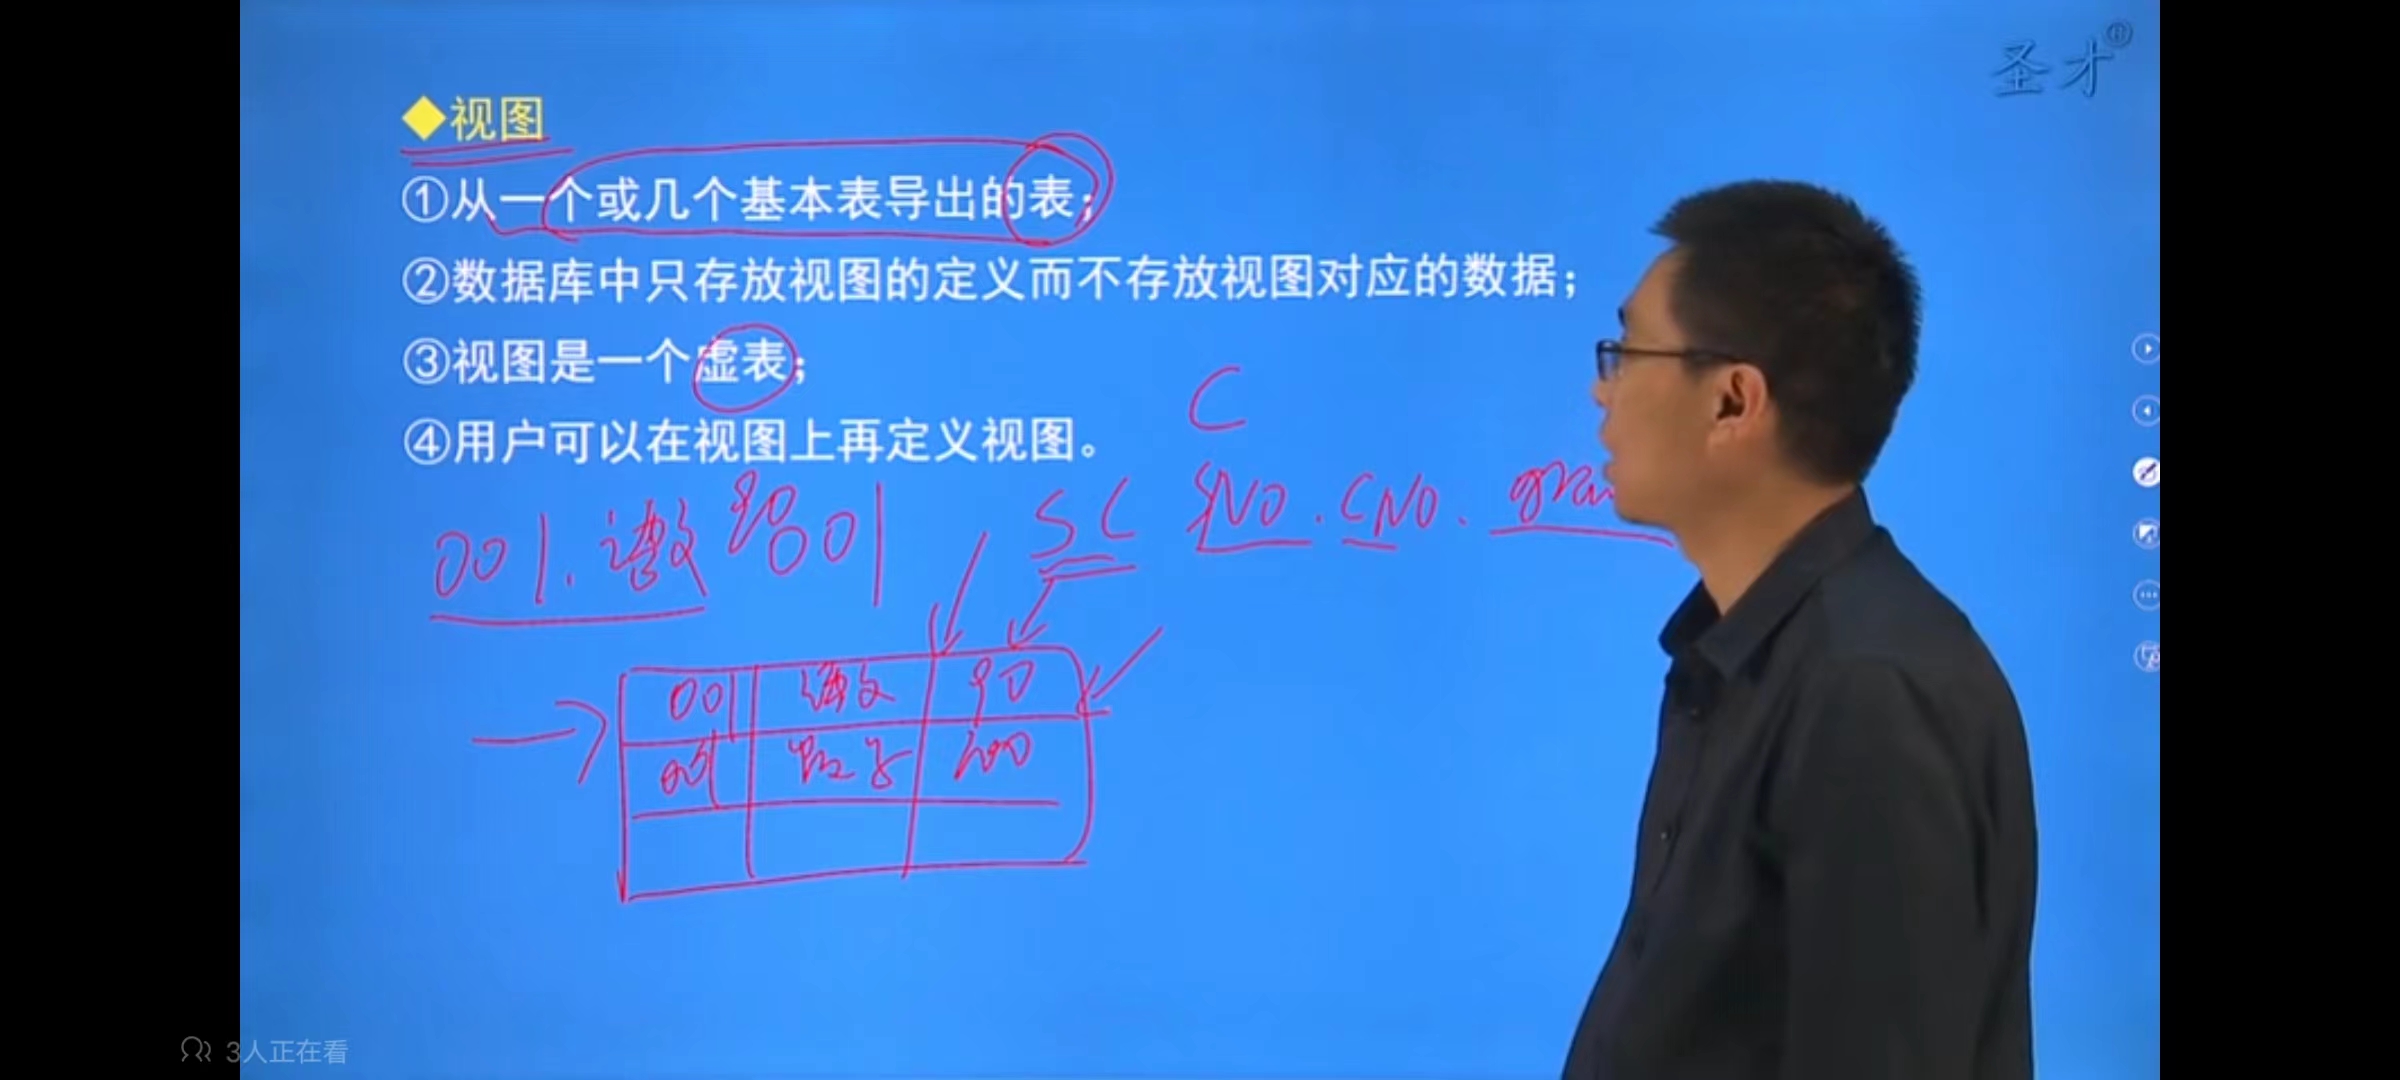 圣才®
◆视图
①从一个或几个基本表导出的表；
②数据库中只存放视图的定义而不存放视图对应的数据；
③视图是一个虚表；
④用户可以在视图上再定义视图。
C
001.
001
SC SNO.CNO.
001 90
001 数学 100
3人正在看